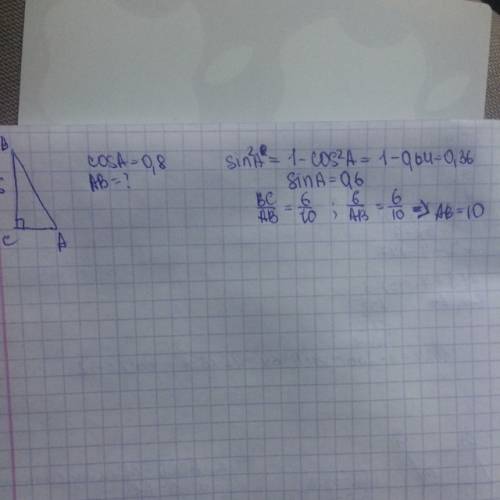 B
cosA = 0,8
AB = ?
6
C
A
sin²A = 1 - cos²A = 1 - 0,64 = 0,36
sinA = 0,6
BC/AB = 6/10 ; 6/AB = 6/10 => AB = 10